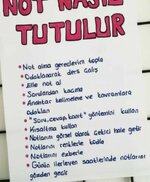 NOT NASIL
TUTULUR
Not alma gereçlerini topla
Odaklanarak ders çalış
Elle not al
Sorulardan kaçma
Anahtar kelimelere ve kavramlara
odaklan
"Soru, cevap, kanıt" yöntemini kullan
Kısaltma kullan
Notlarını görsel olarak çekici hale getir
Notlarını renklerle kodla
Notlarını ezberle
Günün ilerleyen saatlerinde notlarını
gözden geçir